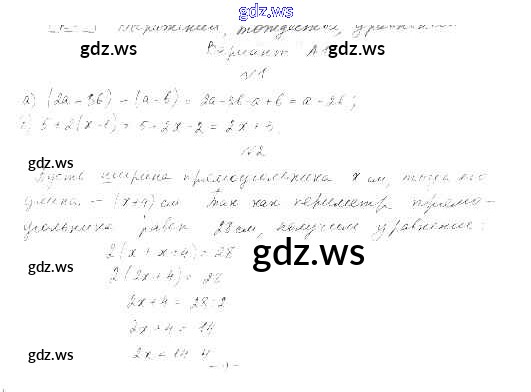 gdz.ws
Выражения, тождества, уравнения
gdz.ws
gdz.ws
Вариант А1
№1
а) (2a - 3b) - (a - b) = 2a - 3b - a + b = a - 2b;
5 + 2(x - 1) = 5 + 2x - 2 = 2x + 3.
№2
gdz.ws
gdz.ws
Пусть ширина прямоугольника x см, тогда его
длина - (x+4) см. Так как периметр прямо-
угольника равен 28 см, получаем уравнение:
2(x + x + 4) = 28
gdz.ws
gdz.ws
2(2x + 4) = 28
2x + 4 = 28 : 2
2x + 4 = 14
2x = 14 - 4
gdz.ws
gdz.ws